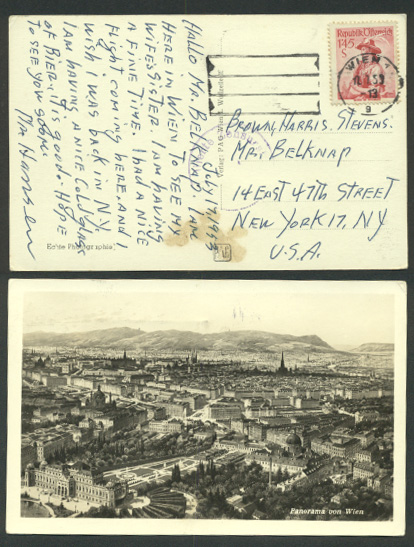 July 17, 1953
HALLO MR. BELKNAP I AM
HERE IN WIEN TO SEE MY
WIFES SISTER. I AM HAVING
A FINE TIME. I HAD A NICE
FLIGHT COMING HERE, AND I
WISH I WAS BACK IN N.Y.
I AM HAVING A NICE COLD GLASS
OF BIER, IT IS GOOD. HOPE
TO SEE YOU SOON.
Mr Hansen
Echte Photographie
Republik Österreich
1·45
S
WIEN
9
BROWN, HARRIS, STEVENS.
MR. BELKNAP
14 EAST 47TH STREET
NEW YORK 17, N.Y
U.S.A.
Panorama von Wien